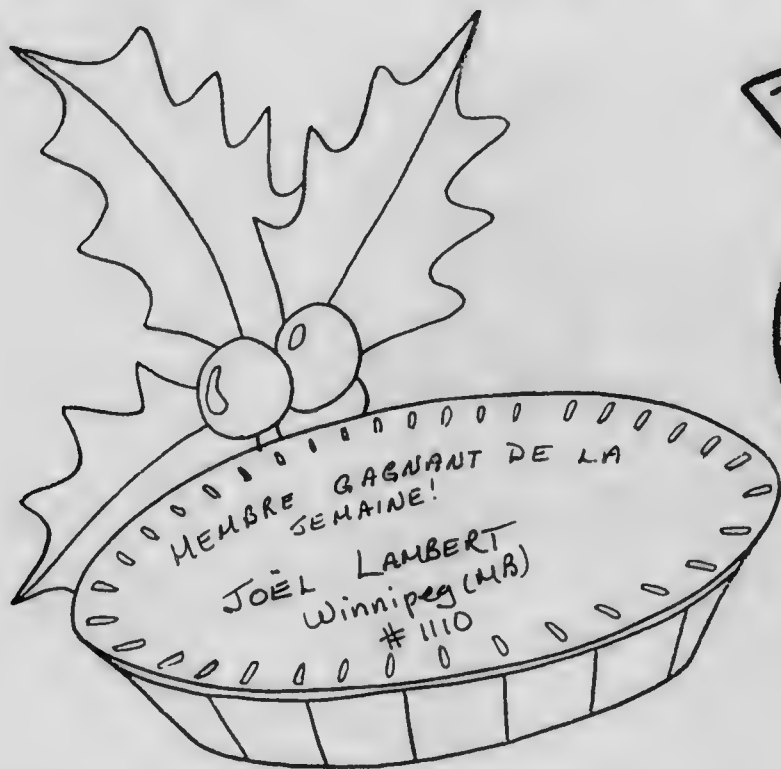 MEMBRE GAGNANT DE LA
SEMAINE!
JOËL LAMBERT
Winnipeg (MB)
# 1110